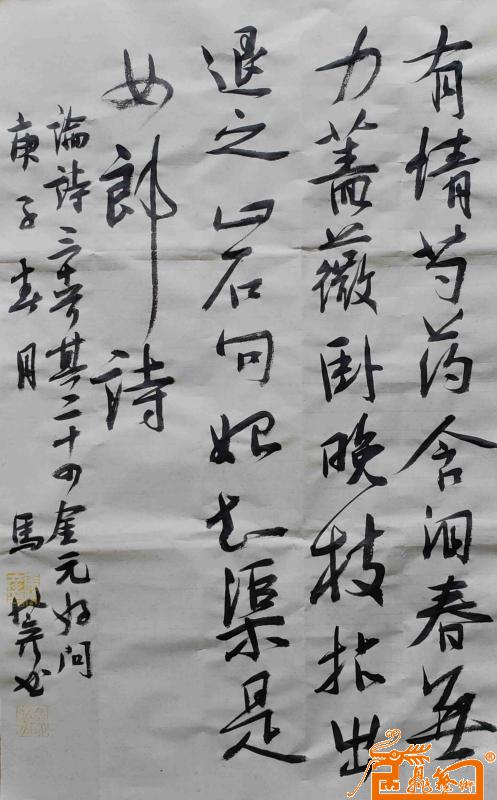 有情芍药含泪春無
力薔薇卧晚枝拈出
退之山石句始知渠是
女郎詩
論詩三十首其二十四金元好问
庚子春月 馬